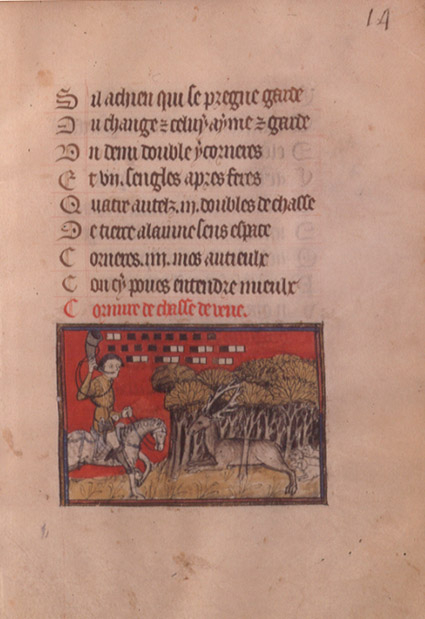 14
S il a chien qui se preigne garde
D u change ⁊ celuy ayme ⁊ garde
U n demi double y corneres
E t vn sengles apres feres
Q uatre autelz .iii. doubles de chasse
D e tiere alainne sens espace
C orneres .iiii. mos autieulx
C on cy poues entendre mieulx
C ornure de chasse de veue.